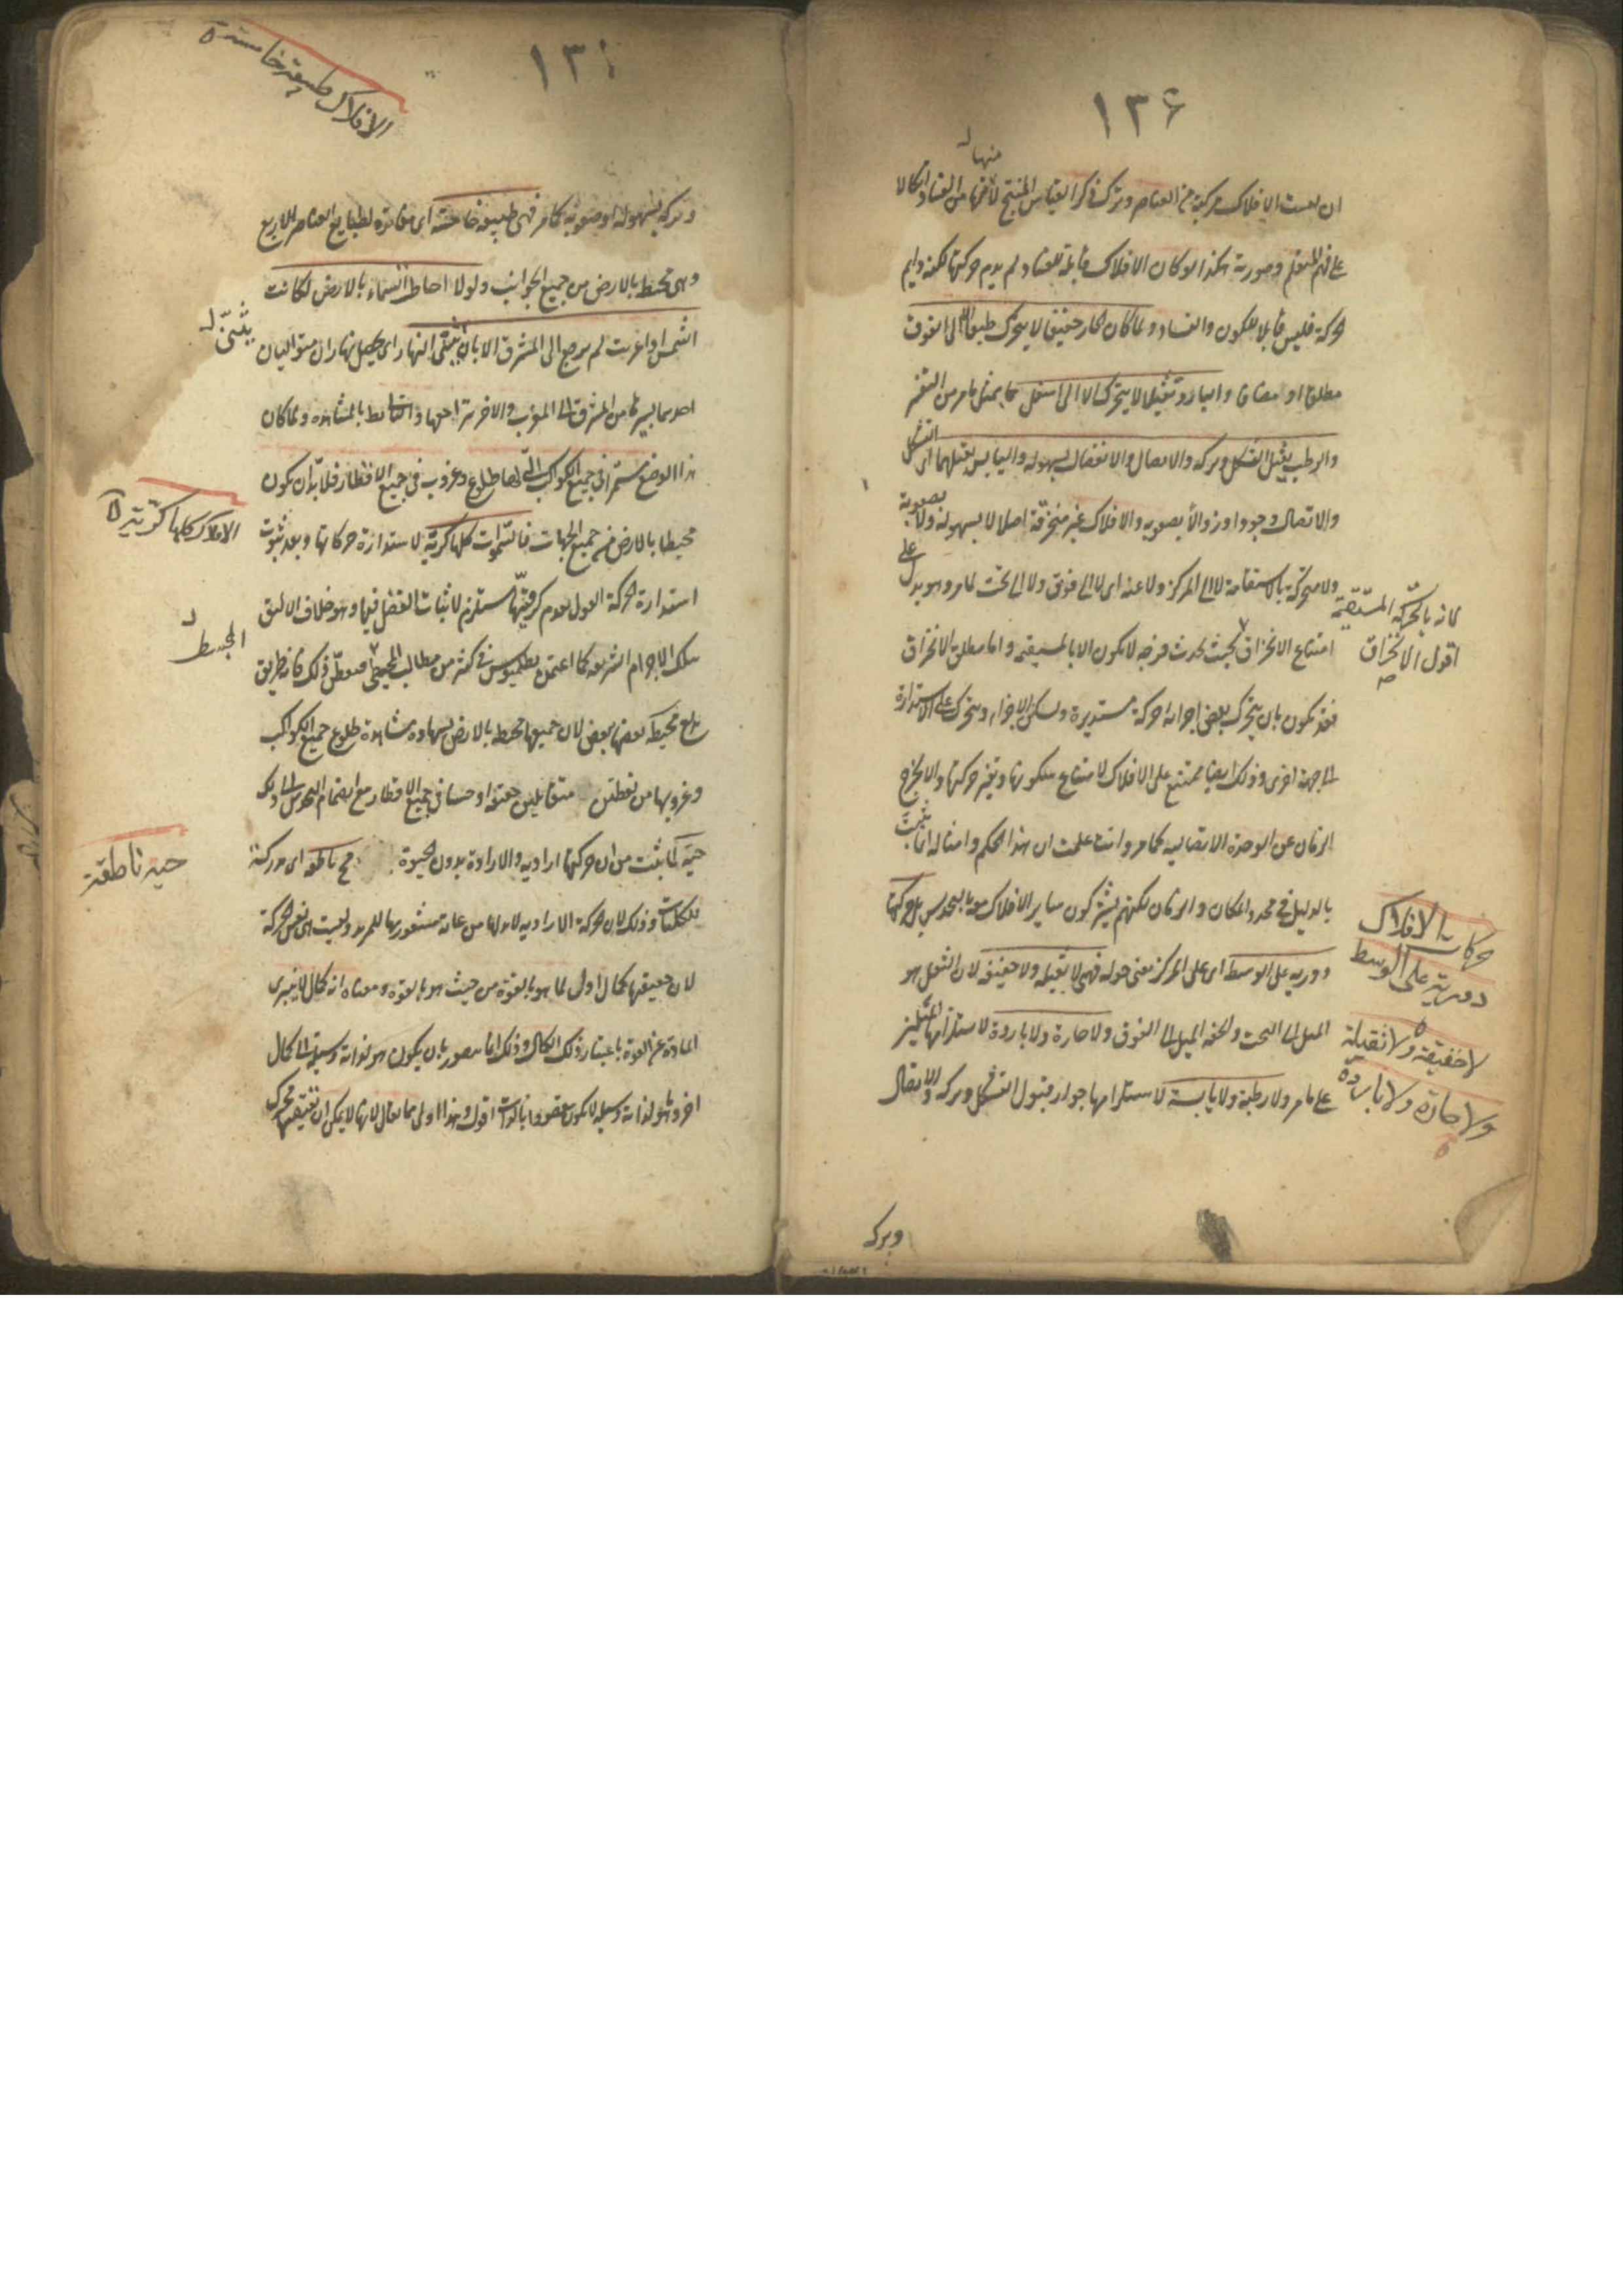 ١٣۶
منها
ان ليست الافلاك مركبة من العناصر وترك ذكر القياس المنتج لأمنها من الفساد اتكالا
على فهم المتعلم وصورته هكذا لو كان الافلاك قابلة للفساد لم يدم حركتها لكنه دايم
الحركة فليس قابلا للكون والفساد ولما كان الحار خفيفا لا يتحرك طبعا الا الى الفوق
مطلقا او مضافا والبارد ثقيلا لا يتحرك الا الى اسفل بمثل ما مر من
والرطب يقبل التشكل وتركه والاتصال والانفصال بسهولة واليابس يقبلهما اى التشكل
والاتصال وجودا وزوالا بصعوبة والافلاك غير منخرقة اصلا لا بسهولة ولا بصعوبة
ولا متحركة بالاستقامة لا الى المركز ولا عنه اى لا الى فوق ولا الى تحت لما مر وهو يدل على
امتناع الانخراق بحيث يحدث فرجه لا يكون الا بالمستقيمة واما مطلق الانخراق
لانه بالحركة المستقيمة
اقول الانخراق
فقد يكون بان يتحرك بعض اجزائه حركة مستديرة ويسكن الاجزاء ويتحرك على الاستدارة
الى جهة اخرى وذلك ايضا ممتنع على الافلاك لامتناع سكونها وتغير حركتها والا يخرج
الزمان عن الوحدة الاتصالية كما مر وانت علمت ان هذا الحكم وامثاله انما يثبت
بالدليل فى محدد المكان والزمان لكنهم يشركون ساير الافلاك معه بالحدس بل حركتها
دورية على الوسط اى على المركز بمعنى حوله فهى لا ثقيلة ولا خفيفة لان الثقل هو
الميل الى التحت والخفة الميل الى الفوق ولا حارة ولا باردة لاستلزامهما الميلين
على ما مر ولا رطبة ولا يابسة لاستلزامهما جواز قبول التشكل وتركه والاتصال
حركات الافلاك
دورية على الوسط
لا خفيفة ولا ثقيلة
ولا حارة ولا باردة
وتركه
الافلاك طبيعة خامسة
وتركه بسهولة او صعوبة كما مر فهى طبيعة خامسة اى مغايرة لطبايع العناصر الاربع
وهى محيط بالارض من جميع الجوانب ولولا احاطة السماء بالارض لكانت
الشمس اذا غربت لم يرجع الى المشرق الا بان يثنى النهار اى يحصل نهاران متواليان
يثنى
احدهما بسيرها من المشرق الى المغرب والاخر بتراجعها والتالى باطل بالمشاهدة ولما كان
هذا الوضع مستمرا فى جميع الكواكب التى لها طلوع وغروب فى جميع الاقطار فلا بد ان يكون
محيطا بالارض من جميع الجهات فالسموات كلها كرية لاستدارة حركاتها وبعد ثبوت
الافلاك كلها كرية
استدارة الحركة القول بعدم كرويتها مستلزم لاثبات الفضل فيها وهو خلاف الاليق
بتلك الاجرام الشريفة كما اعتمد بطلميوس فى كثير من مطالب المجسطى على ذلك فانه طريق
المجسط
محيطة بعضها ببعض لان جميعها محيطه بالارض بشهادة مشاهدة طلوع جميع الكواكب
وغروبها من نقطتين متقابلتين حقيقة او حسا فى جميع الاقطار مع انضمام الحدس الى ذلك
حية لما ثبت من ان حركتها ارادية والارادة بدون الحيوة مح ناطقة اى مدركة
حية ناطقة
للكليات وذلك لان الحركة الارادية لا بد لها من غاية مشعور بها للمريد وليست هى نفس الحركة
لان حقيقتها كمال اول لما هو بالقوة من حيث هو بالقوة ومعناه انه كمال لا يبرى
المادة عن القوة باعتبار ذلك الكمال وذلك انما يتصور بان يكون هو لذاته وسيلة الى كمال
اخر وما هو لذاته وسيلة لا يكون مقصودا بالذات اقول وهذا اولى مما يقال لانها لا يمكن ان